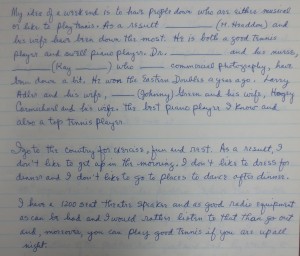 My idea of a weekend is to have people down who are either musical
or like to play tennis. As a result ______ (H. Headdon) and
his wife have been down the most. He is both a good tennis
player and a swell piano player. Dr. ______ and his nurse,
______ (Ray ______) who ______ commercial photography, have
been down a lot. He won the Eastern Doubles a year ago. Larry
Adler and his wife, ______ (Johnny) Green and his wife, Hoagy
Carmichael and his wife. The best piano player I know and
also a top tennis player.
I go to the country for exercise, fun and rest. As a result, I
don't like to get up in the morning. I don't like to dress for
dinner and I don't like to go to places to dance after dinner.
I have a 1200 seat theatre speaker and as good radio equipment
as can be had and I would rather listen to that than go out
and, moreover, you can play good tennis if you are up all
night.